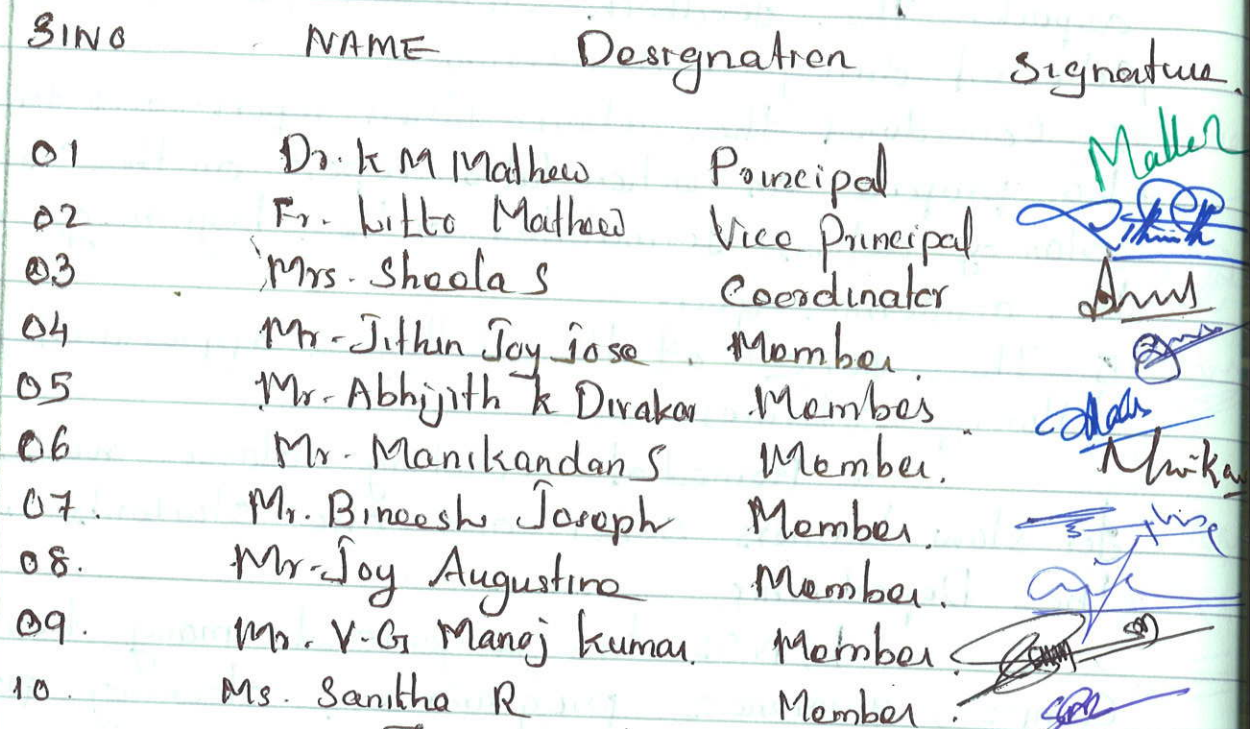 SINO NAME Designation Signature.
01 Dr. K M Mathew Principal
02 Fr. Litto Mathew Vice Principal
03 Mrs. Sheela S Coordinator
04 Mr. Jithin Joy Jose. Member.
05 Mr. Abhijith K Divakar Member.
06 Mr. Manikandan S Member.
07. Mr. Bineesh Joseph Member.
08. Mr. Joy Augustine Member.
09. Mr. V.G Manoj kumar. Member.
10. Ms. Sanitha R Member.